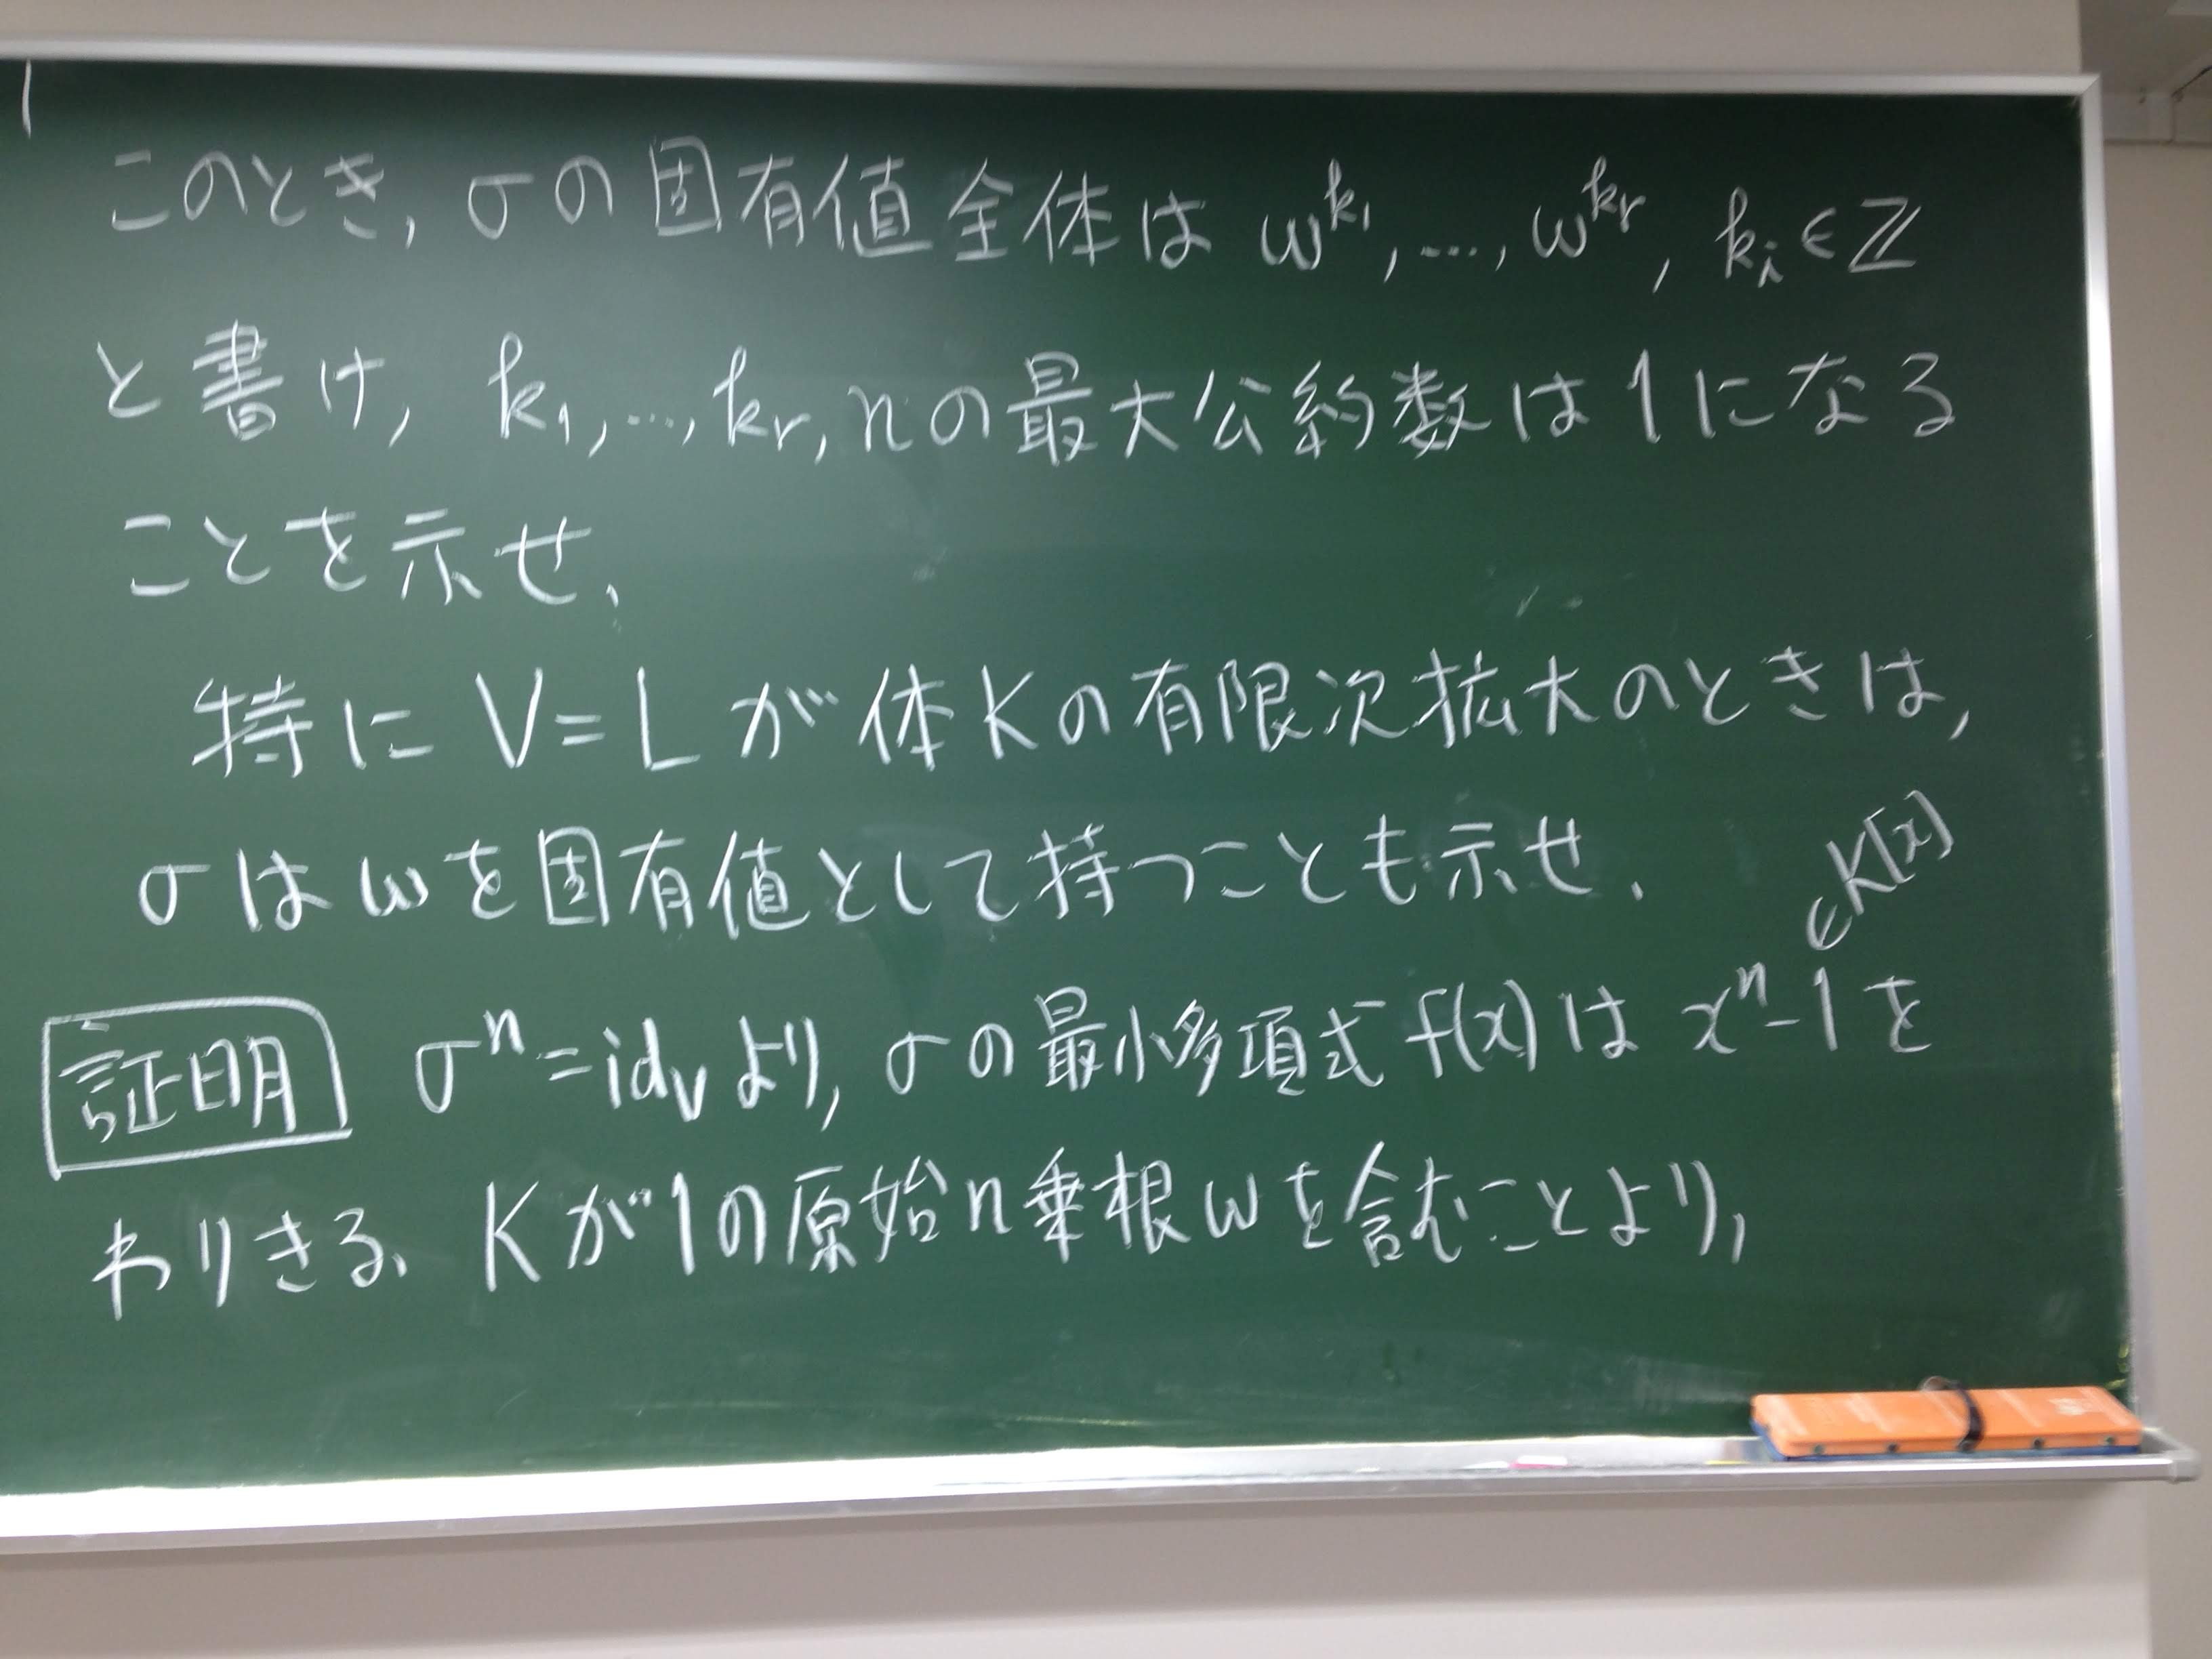 このとき, σの固有値全体は ω^{k_1}, …, ω^{k_r}, k_i∈ℤ
と書け, k_1, …, k_r, nの最大公約数は1になる
ことを示せ.
特に V=L が体Kの有限次拡大のときは,
σはωを固有値として持つことも示せ.
∈K[x]
証明 σ^n=id_Vより, σの最小多項式f(x)は x^n-1を
わりきる、Kが1の原始n乗根ωを含むことより,